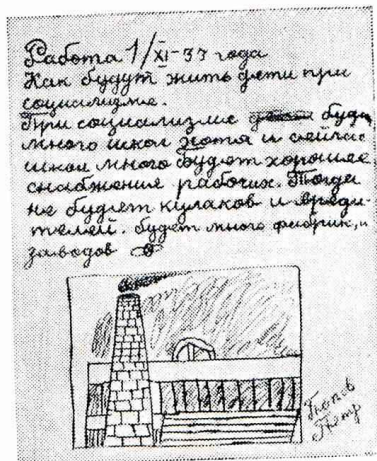 Работа 1/XI-33 года
Как будут жить дети при
социализме.
При социализме будут
много школ хотя и сейчас
школ много будет хорошее
снабжения рабочих. Тогда
не будет кулаков и вреди-
телей. будет много фабрик, и
заводов
Попов
Петр